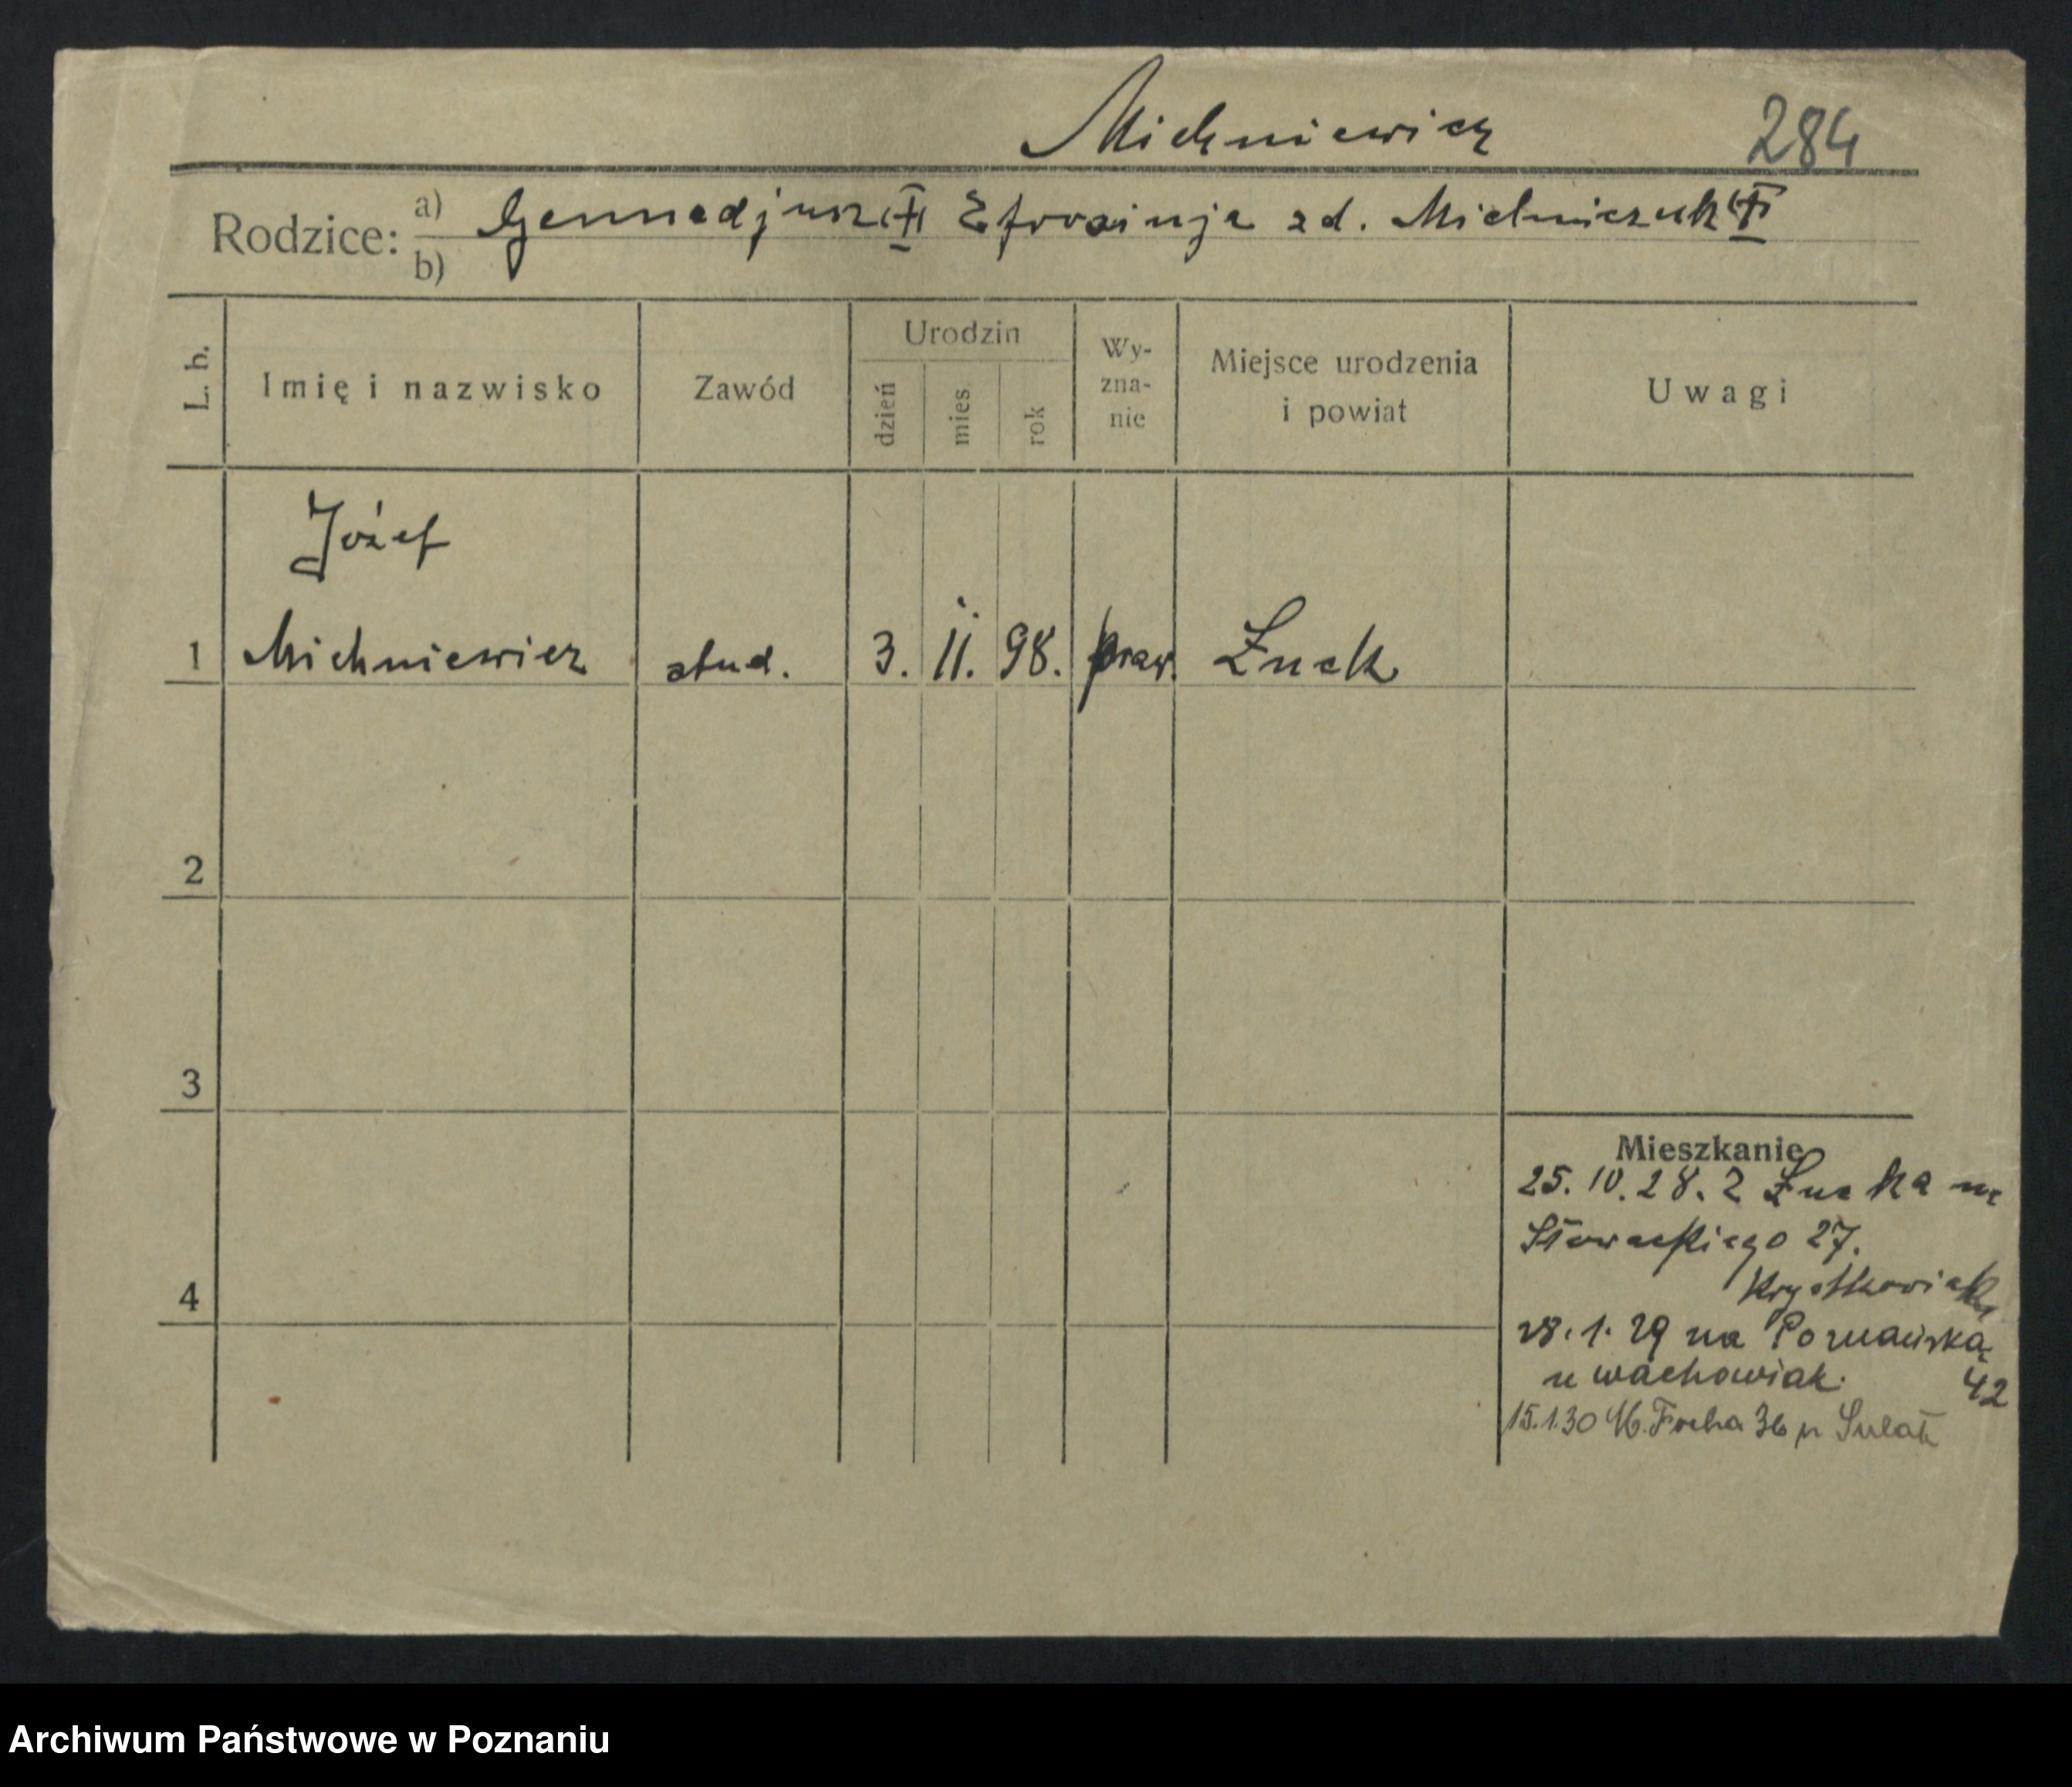 Michniewicz 284
Rodzice: a) Gennadjusz (†) Efrozinja zd. Mielniczuk (†)
b)
L. b.
Imię i nazwisko
Zawód
Urodzin
dzień
mies.
rok
Wy-
zna-
nie
Miejsce urodzenia
i powiat
Uwagi
Józef
1 Michniewicz stud. 3. 11. 98. praw. Łuck
2
3
4
Mieszkanie
25. 10. 28. z Łucka na
Słowackiego 27.
28. 1. 29 na Poznańską
u Wachowiak. 42
15.1.30 M. Focha 36
Archiwum Państwowe w Poznaniu